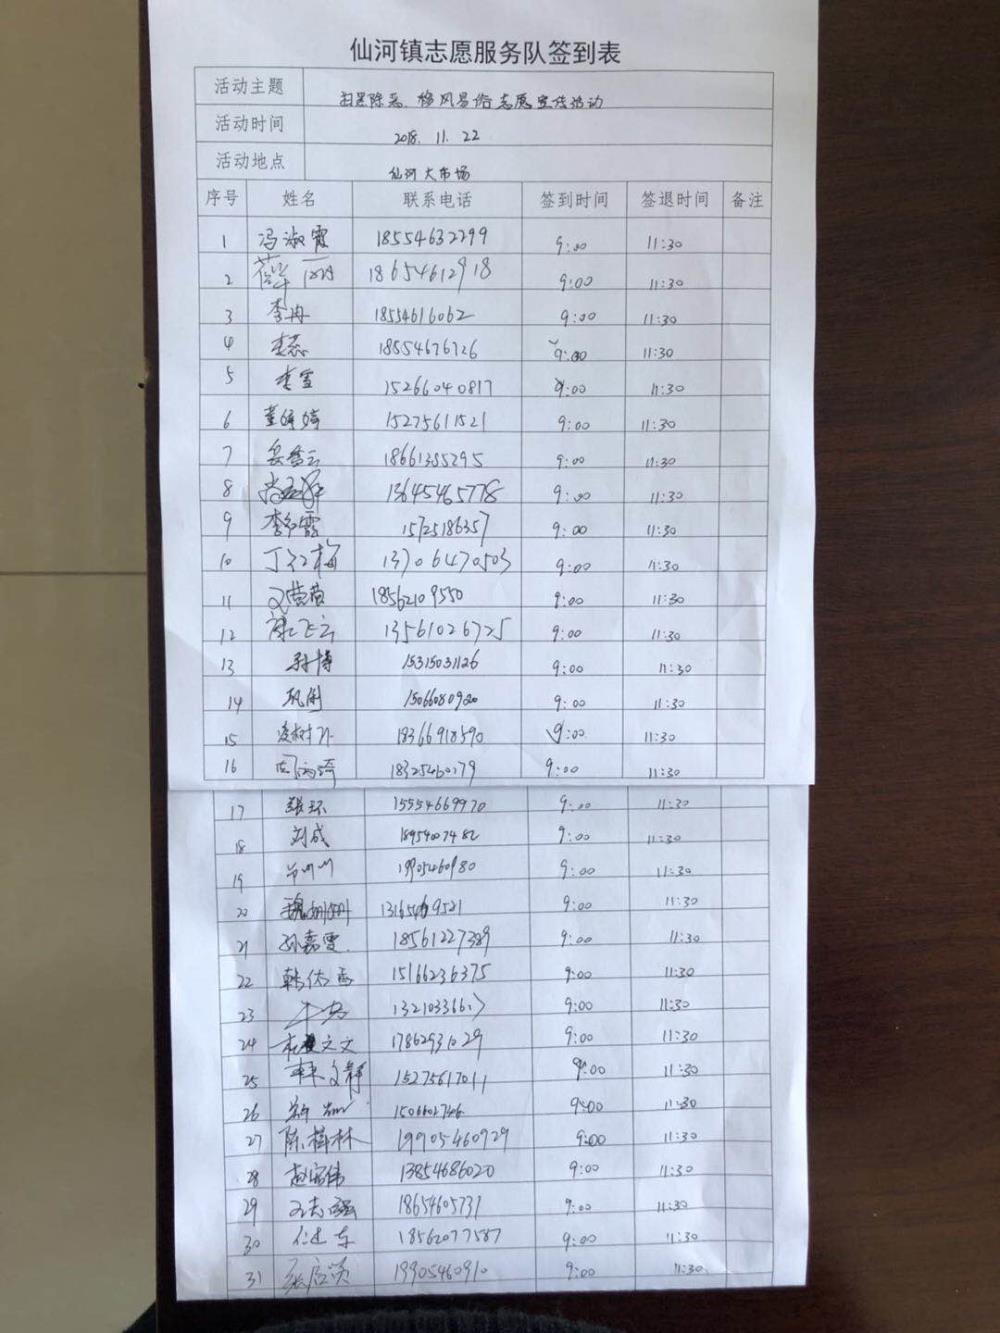 仙河镇志愿服务队签到表
活动主题 扫黑除恶、移风易俗志愿宣传活动
活动时间 2018. 11. 22
活动地点 仙河大市场
序号 姓名 联系电话 签到时间 签退时间 备注
1 冯淑霞 18554632299 9:00 11:30
2 薛 18654612918 9:00 11:30
3 李冉 18554616062 9:00 11:30
4 李蕊 18554676726 9:00 11:30
5 李雪 15266040817 9:00 11:30
6 董婷婷 15275611521 9:00 11:30
7 18661355295 9:00 11:30
8 13645465778 9:00 11:30
9 李红霞 15725186357 9:00 11:30
10 丁红梅 13706470503 9:00 11:30
11 18562109550 9:00 11:30
12 康飞云 13561026725 9:00 11:30
13 孙博 15315031126 9:00 11:30
14 巩闯 15066080920 9:00 11:30
15 18366918590 9:00 11:30
16 18325460179 9:00 11:30
17 张环 15554669970 9:00 11:30
18 刘成 18954007482 9:00 11:30
19 19905460980 9:00 11:30
20 9:00 11:30
21 孙嘉雯 18561227389 9:00 11:30
22 韩依 15166236375 9:00 11:30
23 9:00 11:30
24 文文 17862931029 9:00 11:30
25 文静 15275617011 9:00 11:30
26 9:00 11:30
27 陈梅林 19905460929 9:00 11:30
28 赵富伟 13854686020 9:00 11:30
29 志强 18654605731 9:00 11:30
30 任建东 18562077587 9:00 11:30
31 19905460910 9:00 11:30